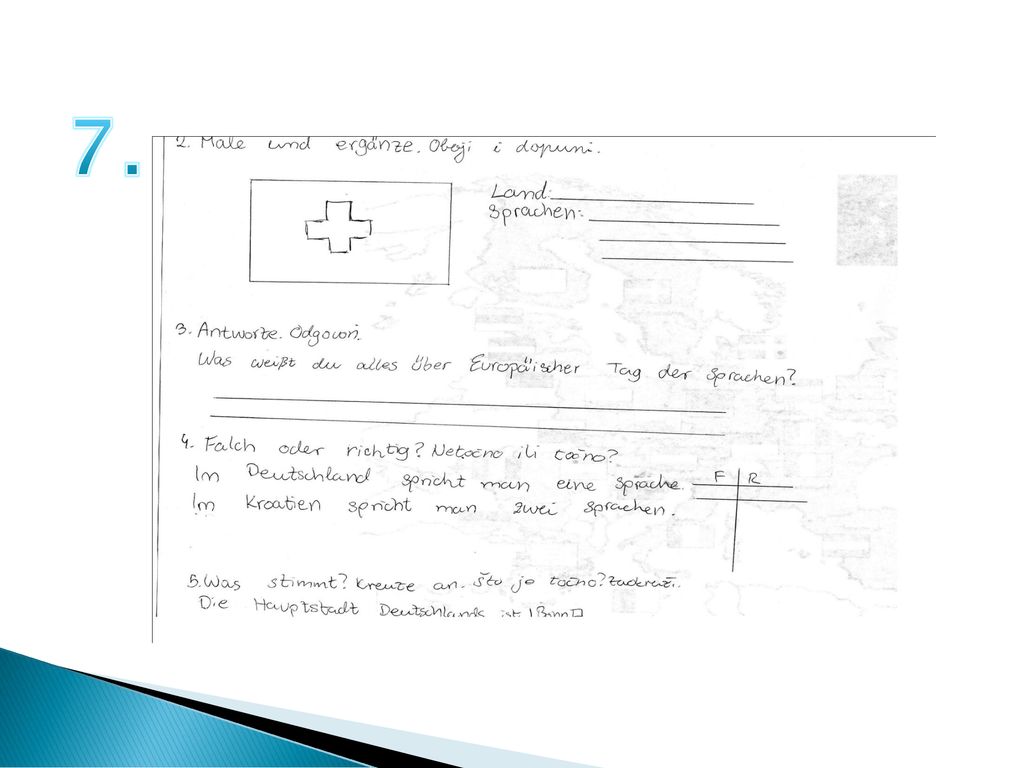 7.
2. Male und ergänze. Oboji i dopuni.
Land:
Sprachen:
3. Antworte. Odgovori.
Was weißt du alles über Europäischer Tag der Sprachen?
4. Falch oder richtig? Netočno ili točno?
F R
Im Deutschland spricht man eine Sprache.
Im Kroatien spricht man zwei Sprachen.
5. Was stimmt? Kreuze an. Što je točno? Zaokruži.
Die Hauptstadt Deutschlands ist Bonn